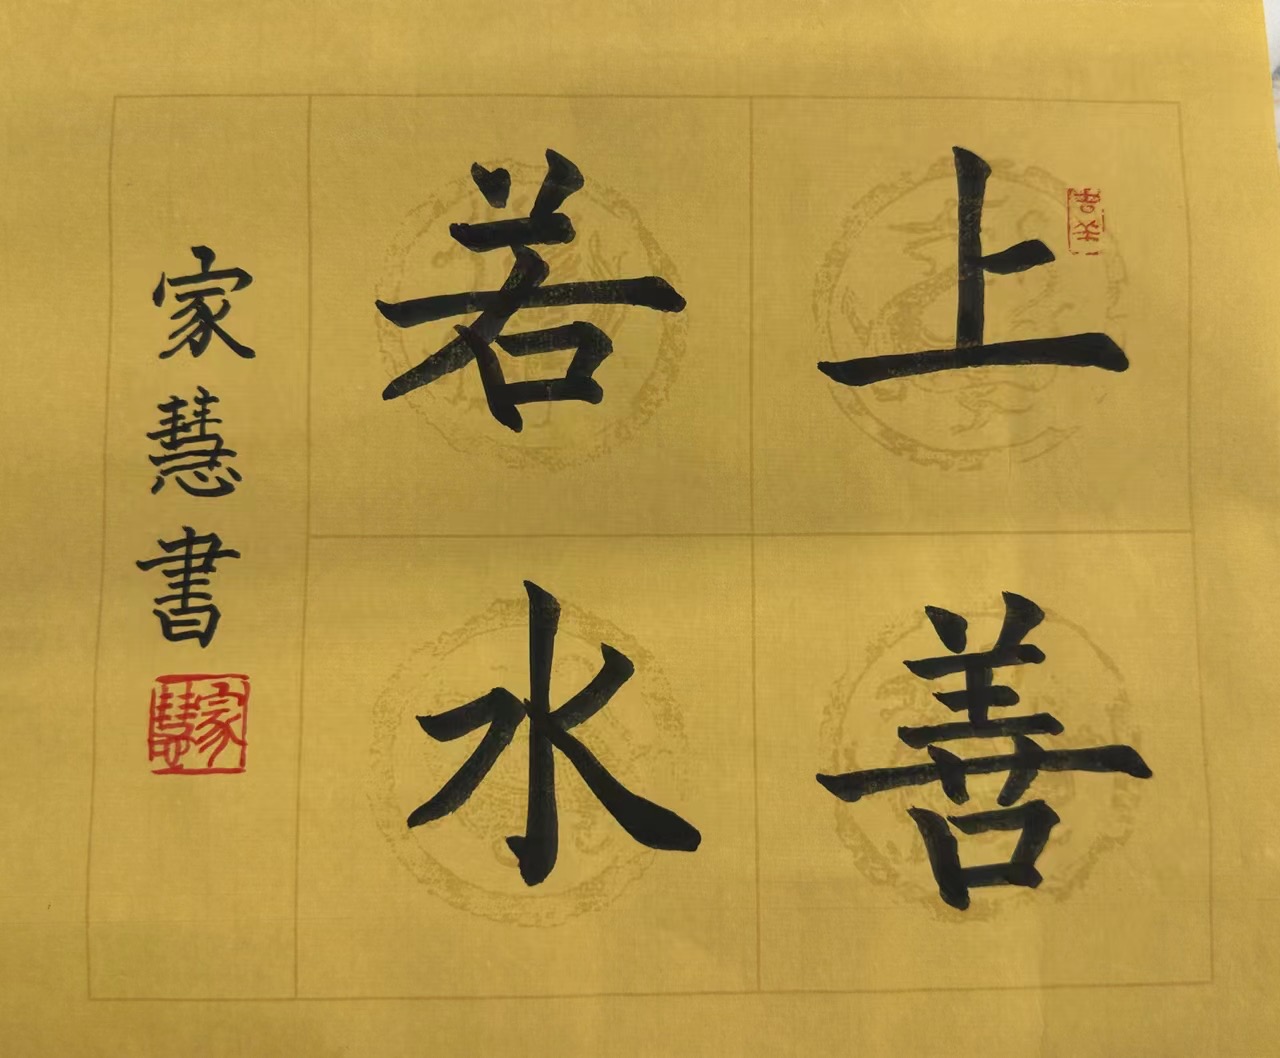 上善
若水
家慧書
家慧